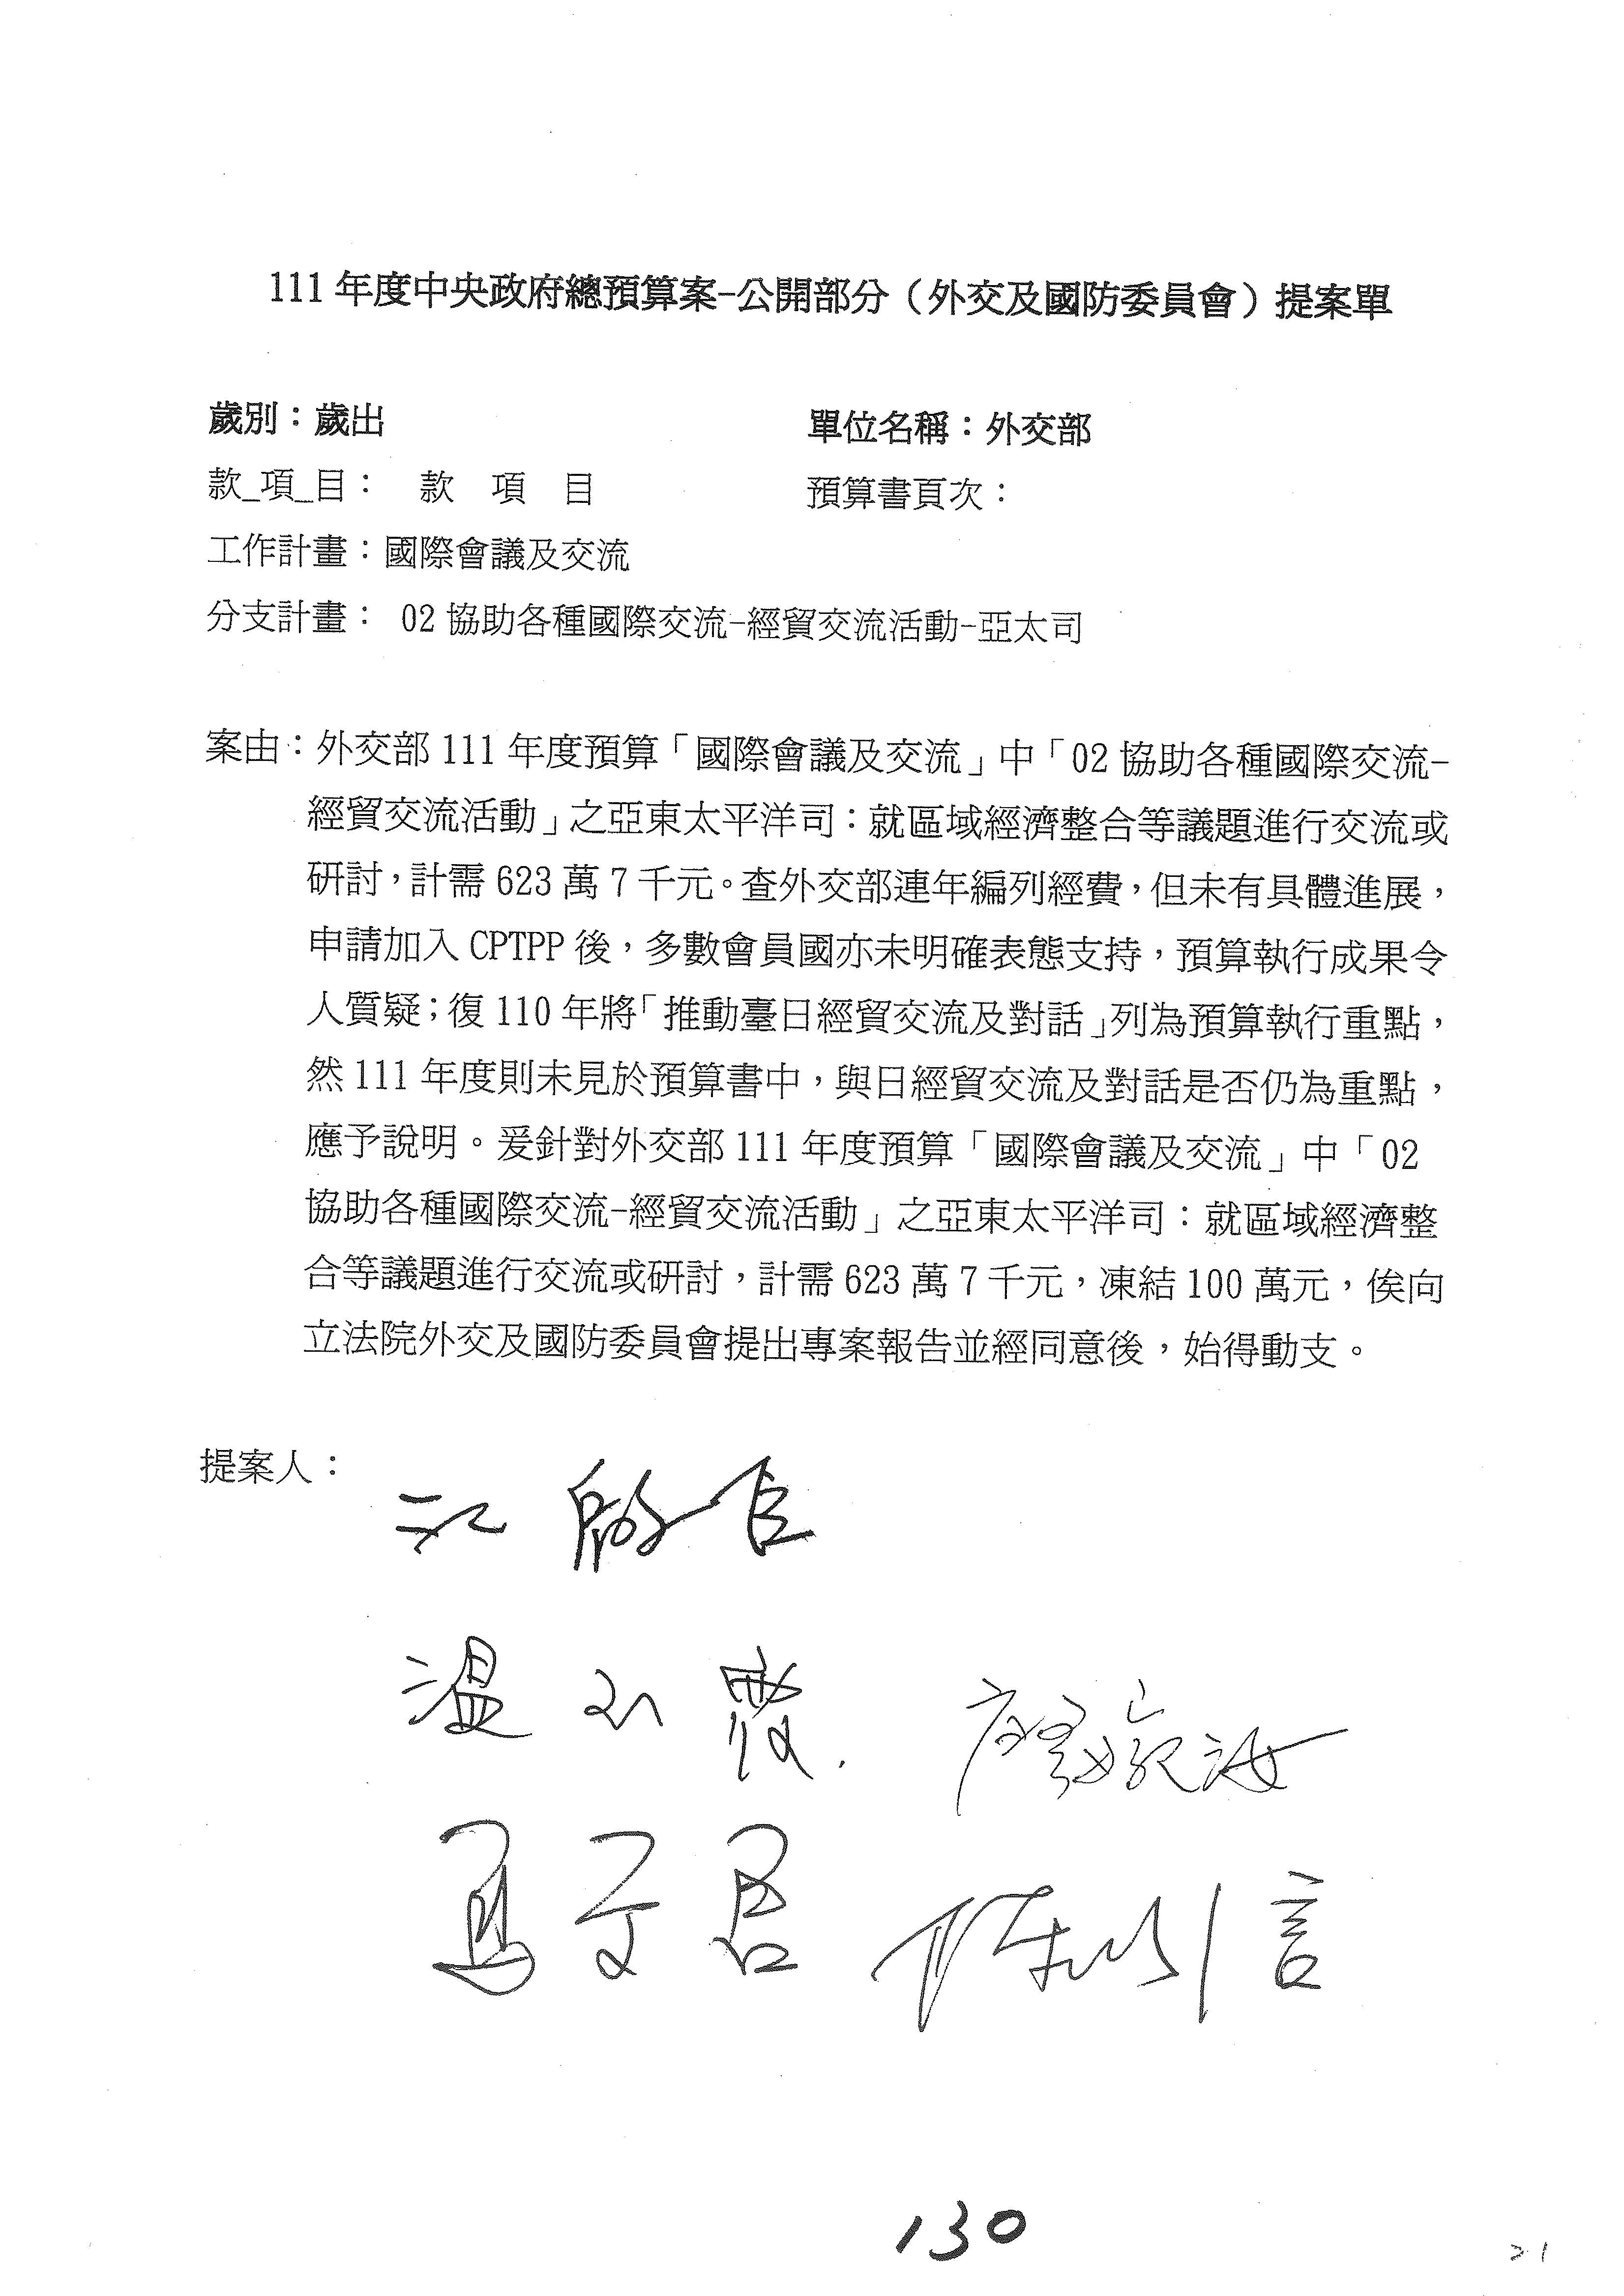 111年度中央政府總預算案-公開部分（外交及國防委員會）提案單
歲別：歲出
單位名稱：外交部
款_項_目： 款 項 目
預算書頁次：
工作計畫：國際會議及交流
分支計畫： 02協助各種國際交流-經貿交流活動-亞太司
案由：外交部111年度預算「國際會議及交流」中「02協助各種國際交流-
經貿交流活動」之亞東太平洋司：就區域經濟整合等議題進行交流或
研討，計需623萬7千元。查外交部連年編列經費，但未有具體進展，
申請加入CPTPP後，多數會員國亦未明確表態支持，預算執行成果令
人質疑；復110年將「推動臺日經貿交流及對話」列為預算執行重點，
然111年度則未見於預算書中，與日經貿交流及對話是否仍為重點，
應予說明。爰針對外交部111年度預算「國際會議及交流」中「02
協助各種國際交流-經貿交流活動」之亞東太平洋司：就區域經濟整
合等議題進行交流或研討，計需623萬7千元，凍結100萬元，俟向
立法院外交及國防委員會提出專案報告並經同意後，始得動支。
提案人：
江啟臣
溫玉霞
廖婉汝
馬文君
陳以信
130
21